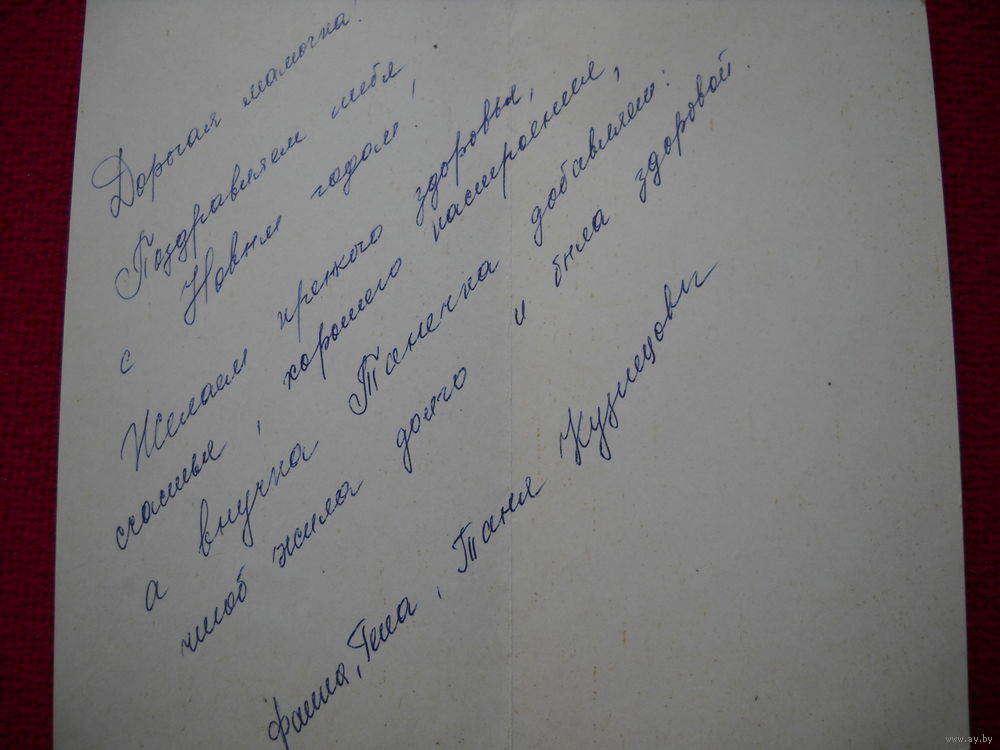 Дорогая мамочка.
Поздравляем тебя
с Новым годом!
Желаем крепкого здоровья,
счастья, хорошего настроения,
а внучка Танечка добавляет:
чтоб жила долго и была здоровой.
Таня Кузнецовы
www.ay.by